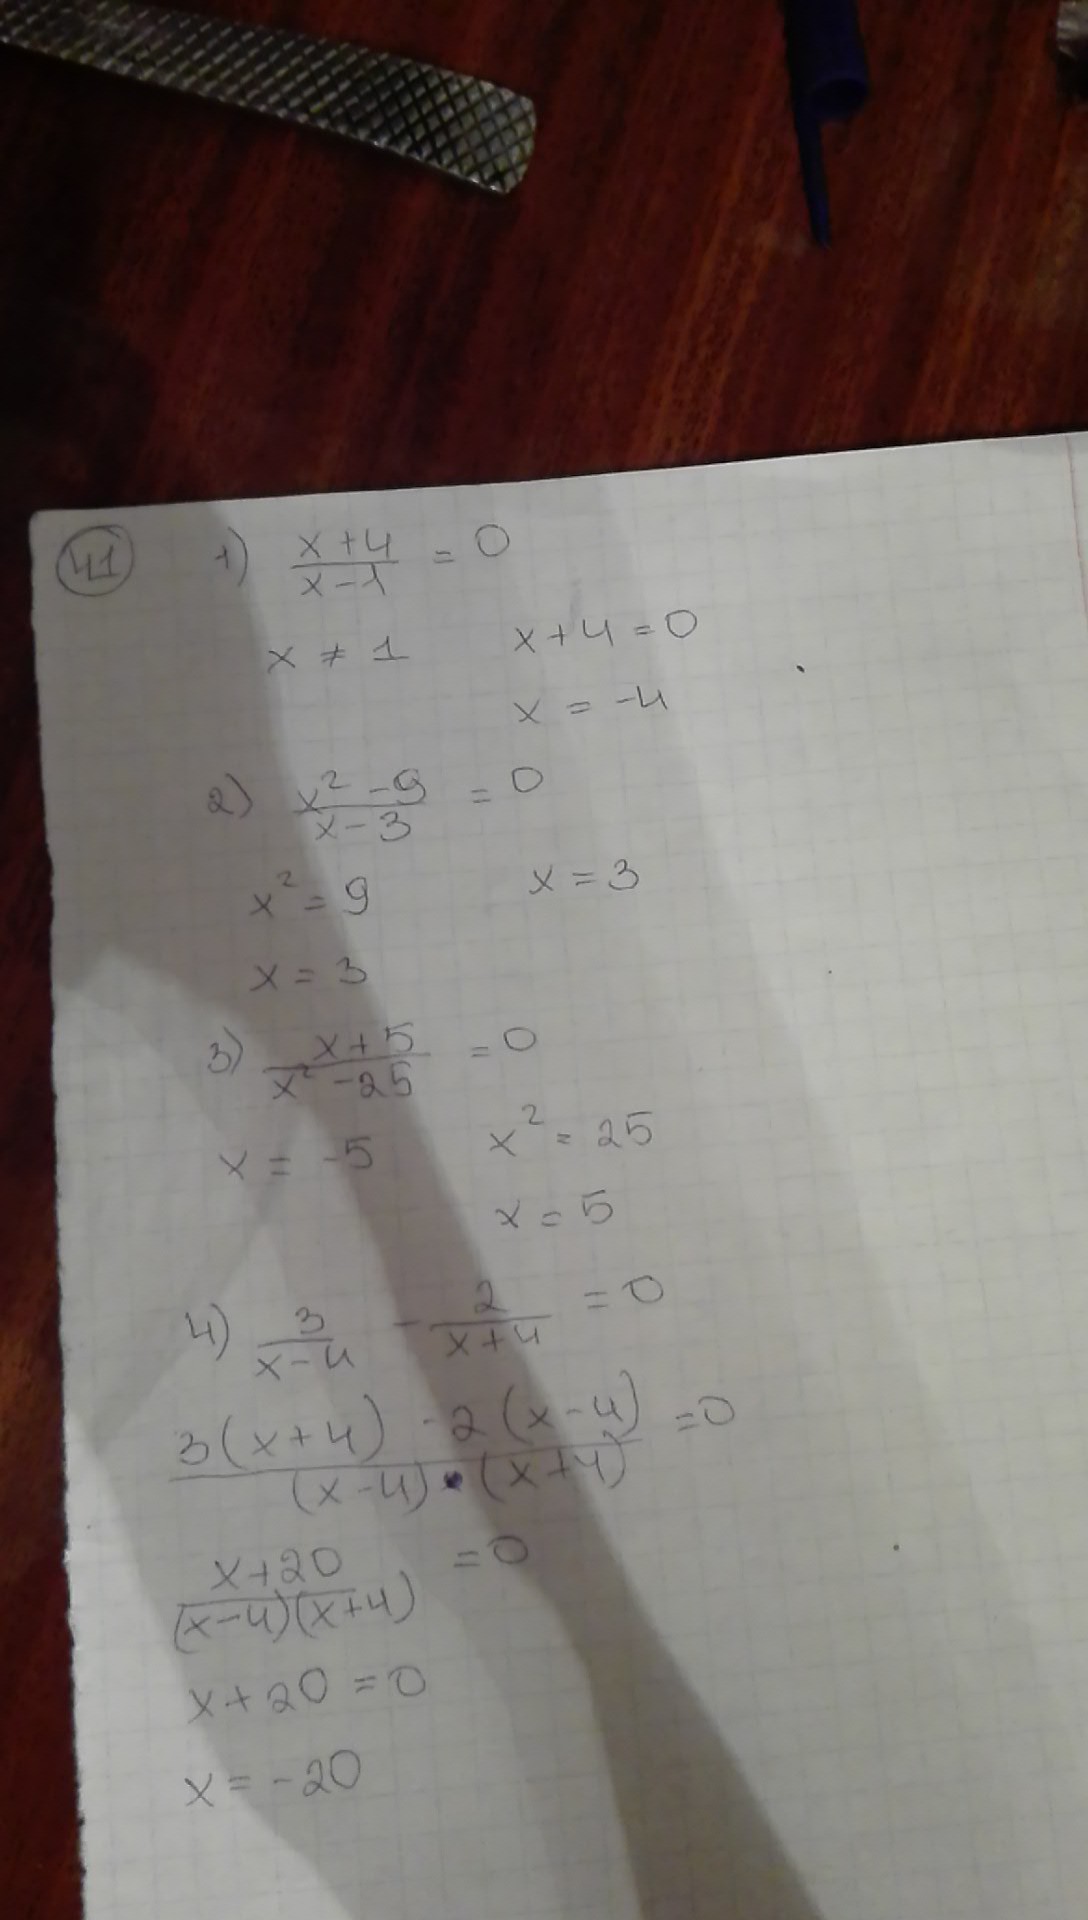 41 1) (x+4)/(x-1) = 0
x ≠ 1 x+4=0
x = -4
2) (x² -9)/(x-3) = 0
x² = 9 x = 3
x = 3
3) (x+5)/(x² -25) = 0
x = -5 x² = 25
x = 5
4) 3/(x-4) - 2/(x+4) = 0
(3(x+4) -2(x-4))/((x-4)·(x+4)) =0
(x+20)/((x-4)(x+4)) =0
x+20=0
x=-20